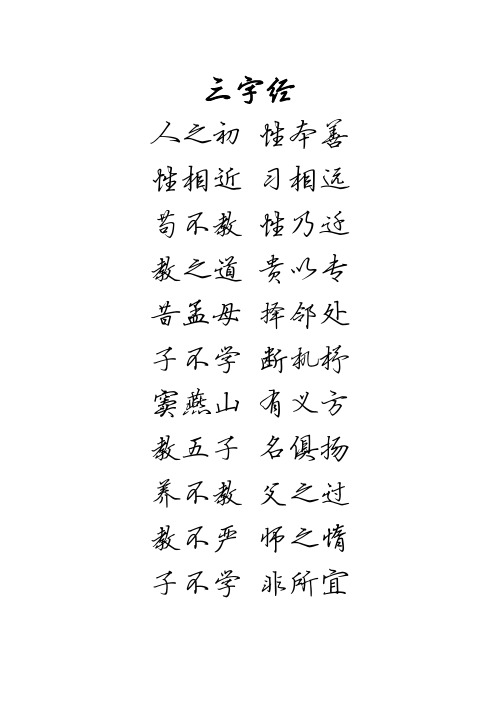 三字经
人之初 性本善
性相近 习相远
苟不教 性乃迁
教之道 贵以专
昔孟母 择邻处
子不学 断机杼
窦燕山 有义方
教五子 名俱扬
养不教 父之过
教不严 师之惰
子不学 非所宜